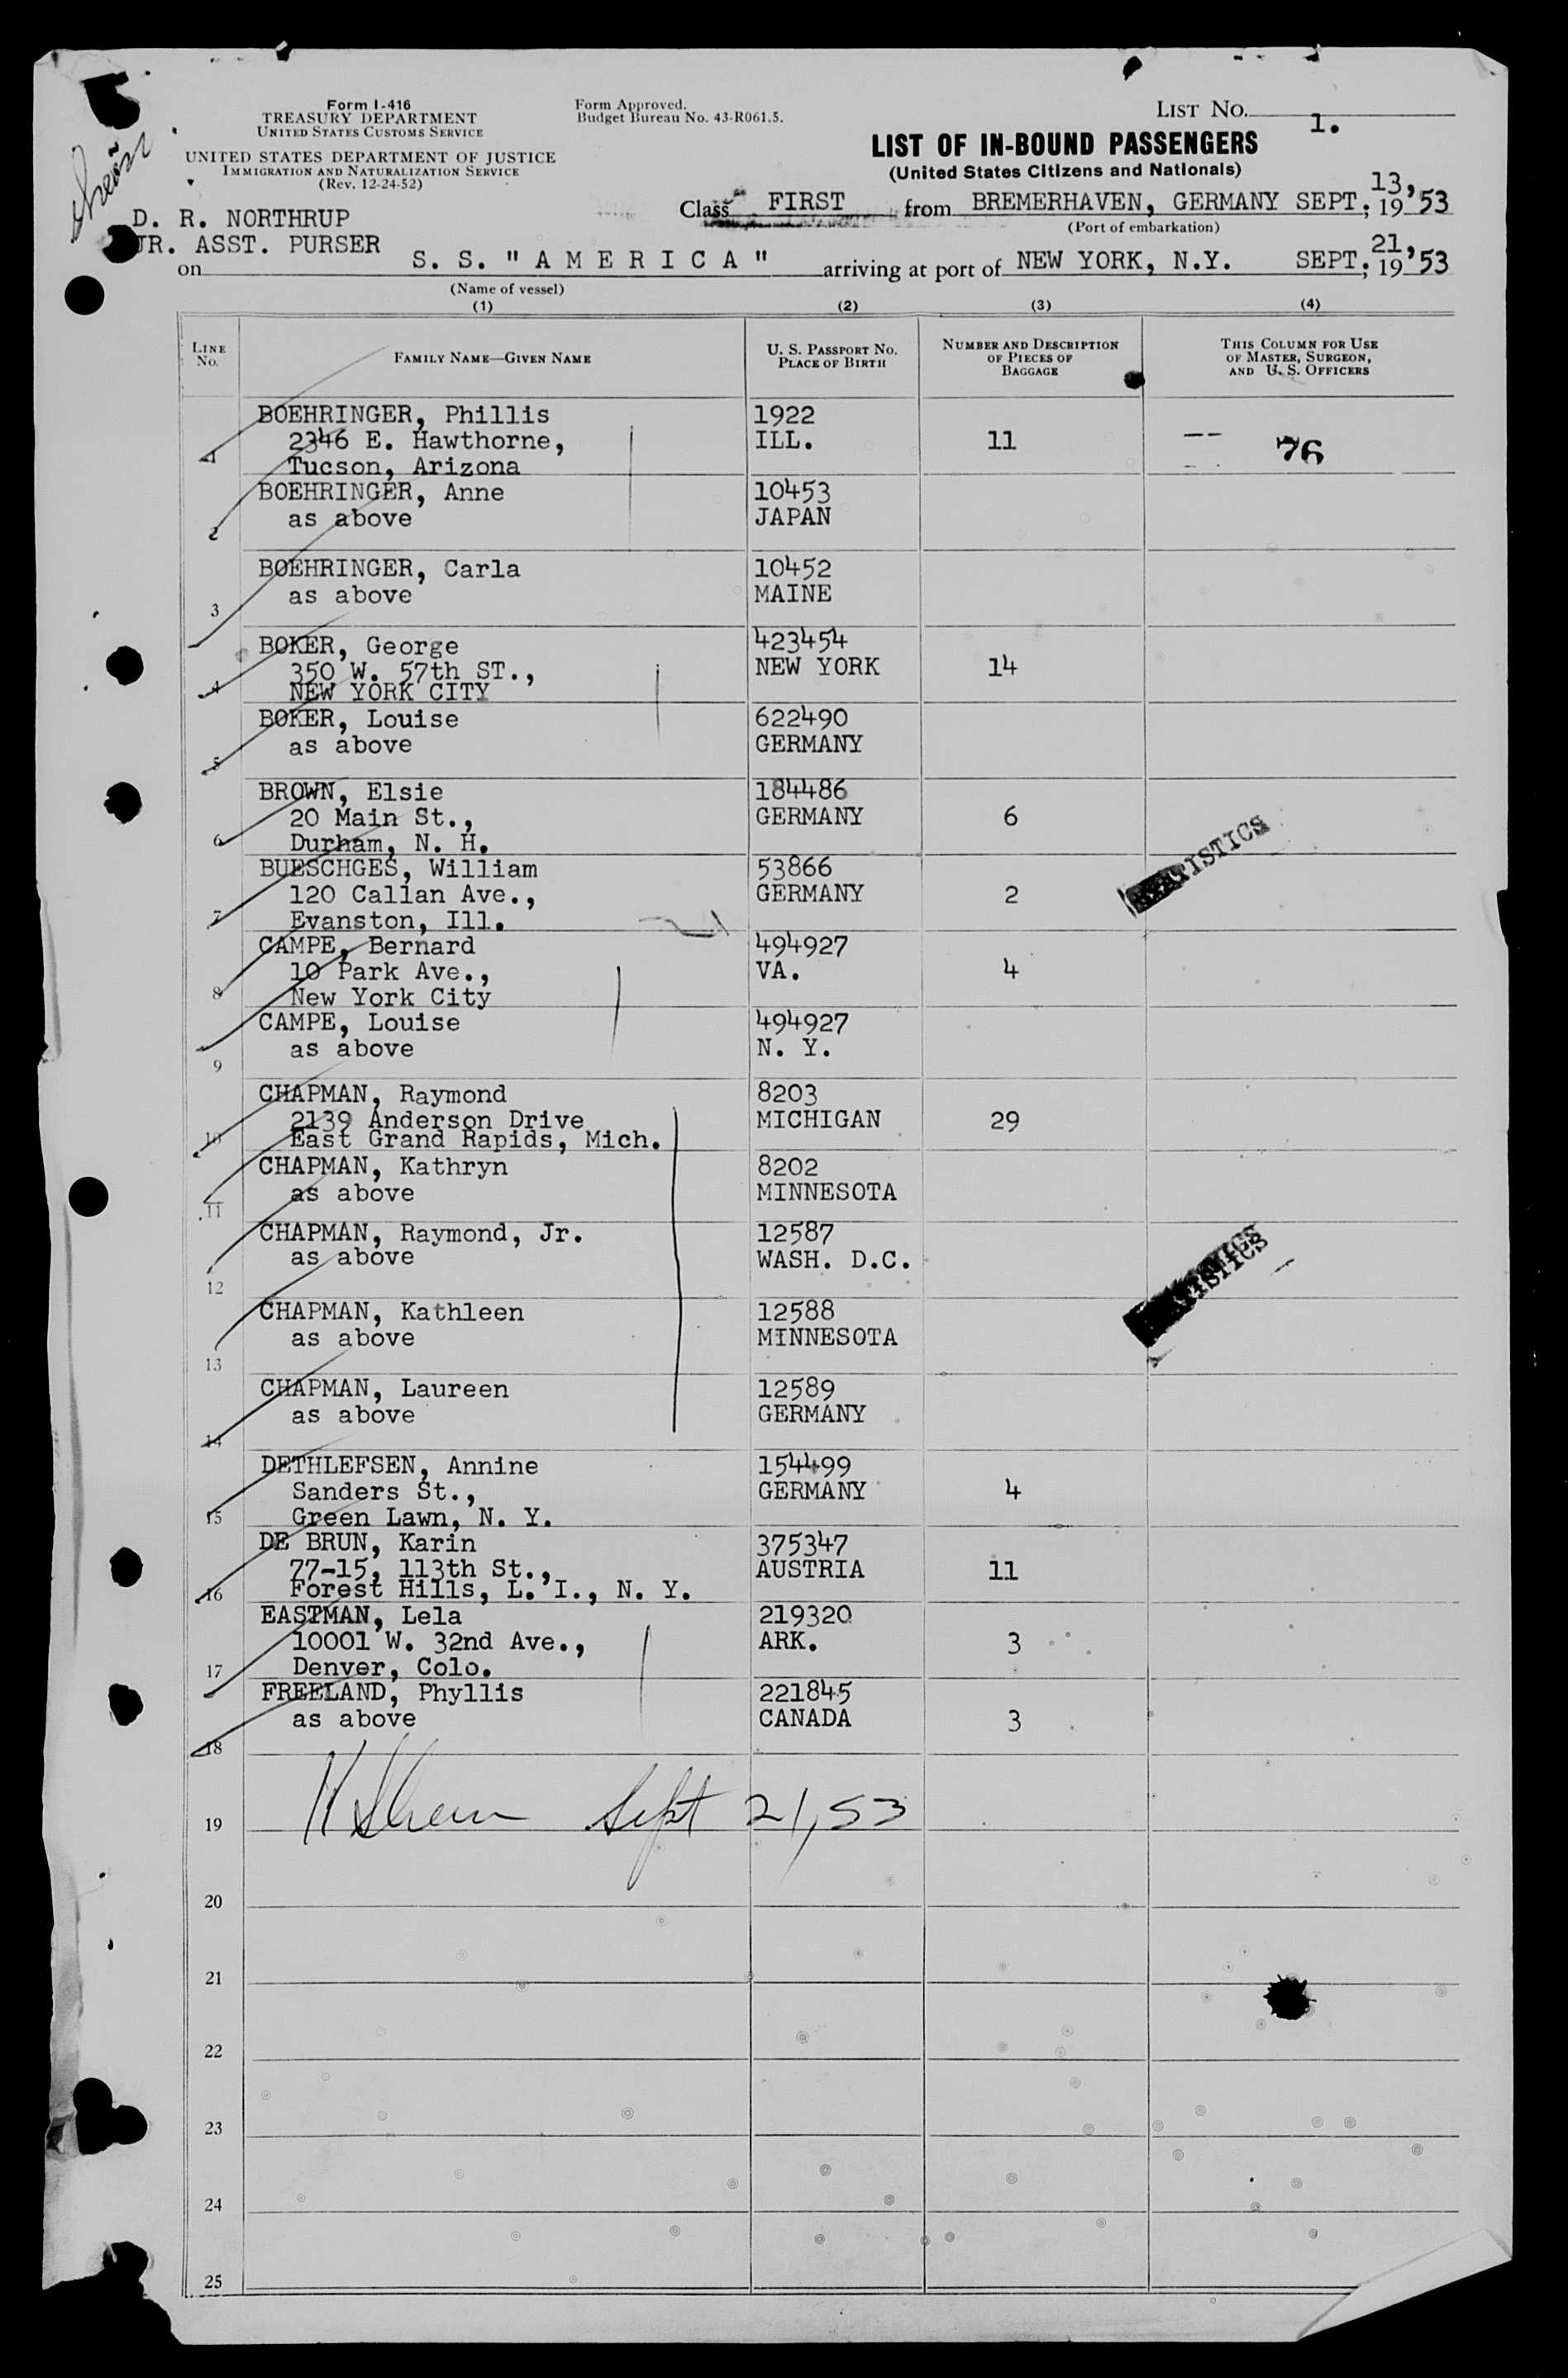 Form I-416
TREASURY DEPARTMENT
UNITED STATES CUSTOMS SERVICE
UNITED STATES DEPARTMENT OF JUSTICE
IMMIGRATION AND NATURALIZATION SERVICE
(Rev. 12-24-52)
Form Approved.
Budget Bureau No. 43-R061.5.
LIST NO. 1.
LIST OF IN-BOUND PASSENGERS
(United States Citizens and Nationals)
Class FIRST from BREMERHAVEN, GERMANY SEPT. 13, 19'53
(Port of embarkation)
D. R. NORTHRUP
JR. ASST. PURSER
on S. S. "AMERICA" arriving at port of NEW YORK, N.Y. SEPT. 21, 19'53
(Name of vessel)
(1) (2) (3) (4)
LINE NO. FAMILY NAME—GIVEN NAME U. S. PASSPORT NO. PLACE OF BIRTH NUMBER AND DESCRIPTION OF PIECES OF BAGGAGE THIS COLUMN FOR USE OF MASTER, SURGEON, AND U. S. OFFICERS
BOEHRINGER, Phillis 1922
2346 E. Hawthorne, ILL. 11 76
1 Tucson, Arizona
BOEHRINGER, Anne 10453
2 as above JAPAN
BOEHRINGER, Carla 10452
3 as above MAINE
BOKER, George 423454
350 W. 57th ST., NEW YORK 14
4 NEW YORK CITY
BOKER, Louise 622490
5 as above GERMANY
BROWN, Elsie 184486
20 Main St., GERMANY 6
6 Durham, N. H.
STATISTICS
BUESCHGES, William 53866
120 Callan Ave., GERMANY 2
7 Evanston, Ill.
CAMPE, Bernard 494927
10 Park Ave., VA. 4
8 New York City
CAMPE, Louise 494927
9 as above N. Y.
CHAPMAN, Raymond 8203
2139 Anderson Drive MICHIGAN 29
10 East Grand Rapids, Mich.
CHAPMAN, Kathryn 8202
11 as above MINNESOTA
CHAPMAN, Raymond, Jr. 12587
12 as above WASH. D.C.
STATISTICS
CHAPMAN, Kathleen 12588
13 as above MINNESOTA
CHAPMAN, Laureen 12589
14 as above GERMANY
DETHLEFSEN, Annine 154499
Sanders St., GERMANY 4
15 Green Lawn, N. Y.
DE BRUN, Karin 375347
77-15, 113th St., AUSTRIA 11
16 Forest Hills, L. I., N. Y.
EASTMAN, Lela 219320
10001 W. 32nd Ave., ARK. 3
17 Denver, Colo.
FREELAND, Phyllis 221845
as above CANADA 3
18
19 Sept 21, 53
20
21
22
23
24
25